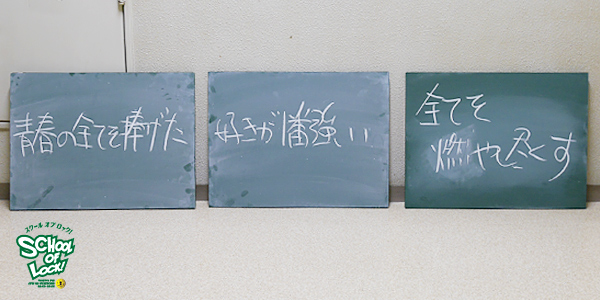 青春の全てを捧げた
好きが1番強い
全てを
燃やし尽くす
スクール オブ ロック!
SCHOOL
OF
LOCK!